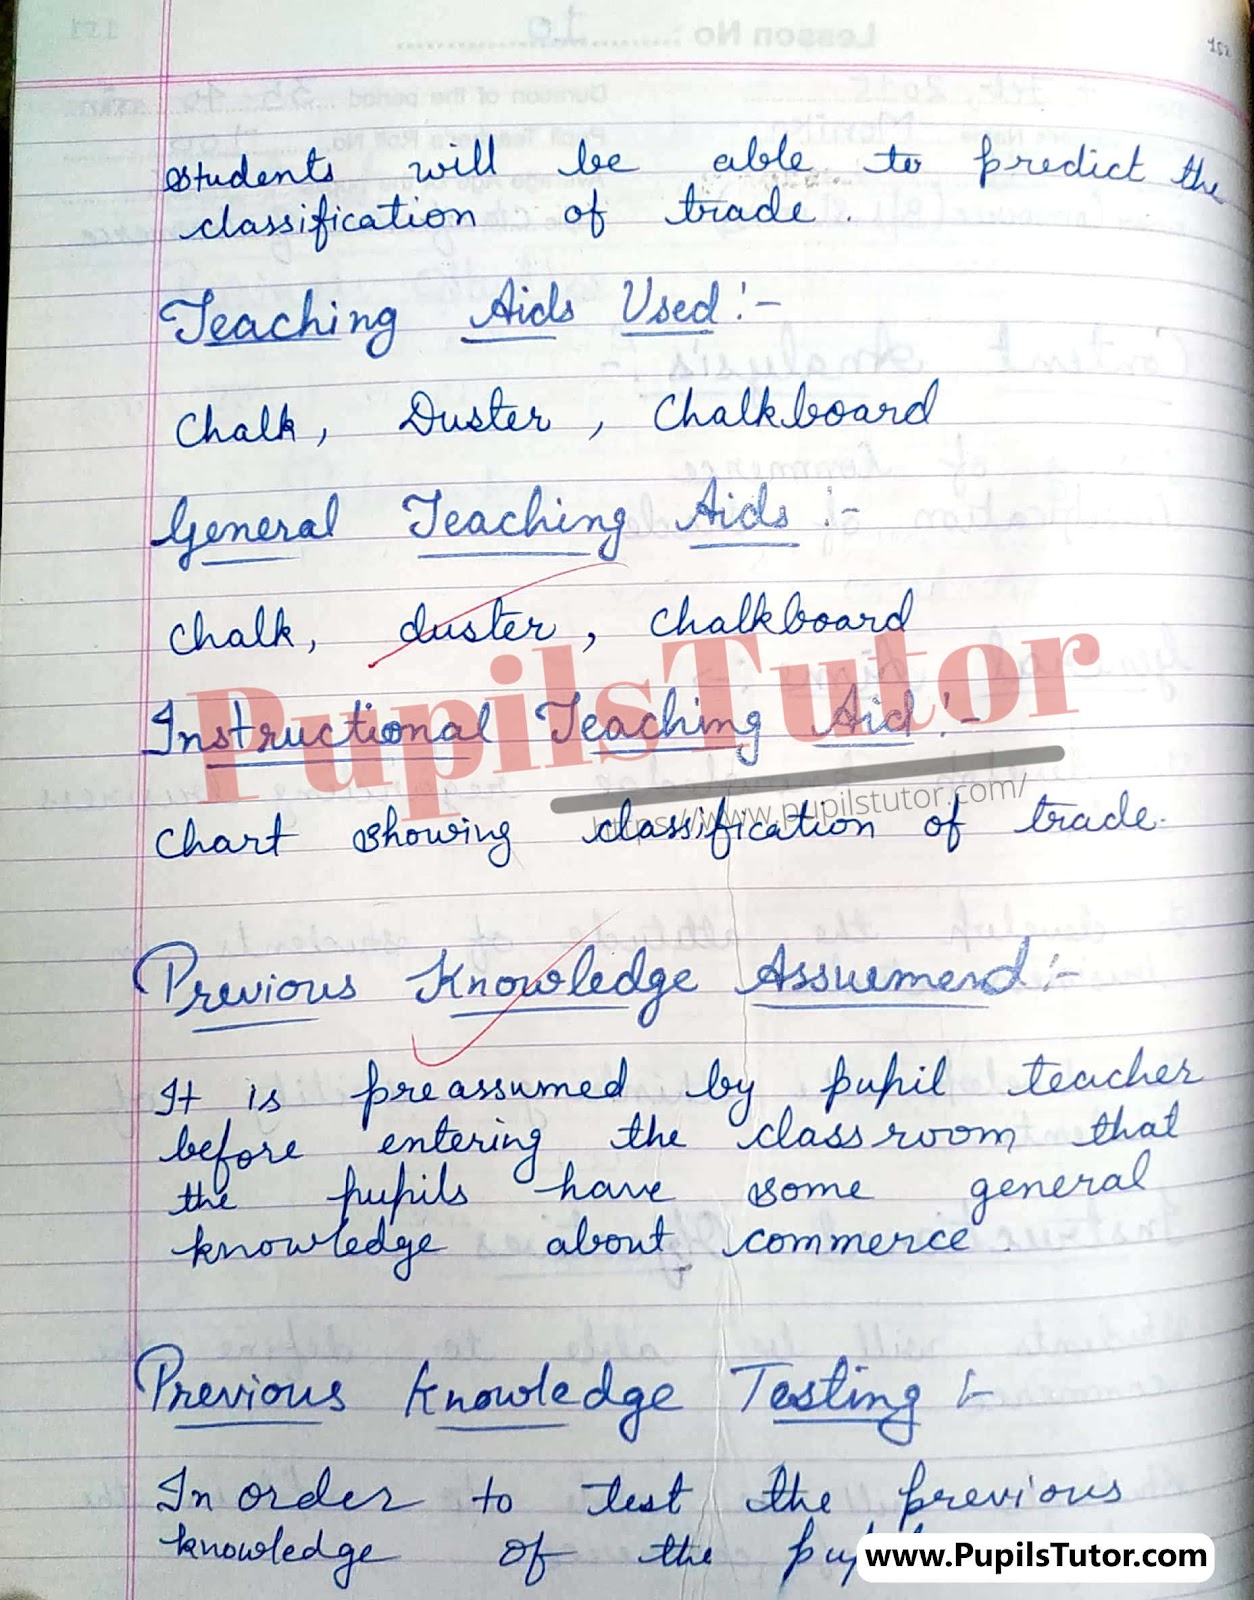 students will be able to predict the
classification of trade.
Teaching Aids Used :-
Chalk, Duster, Chalkboard
General Teaching Aids :-
Chalk, duster, Chalkboard
PupilsTutor
Instructional Teaching Aid :-
https://www.pupilstutor.com/
Chart showing classification of trade.
Previous Knowledge Assuemend :-
It is preassumed by pupil teacher
before entering the classroom that
the pupils have some general
knowledge about commerce.
Previous Knowledge Testing :-
In order to test the previous
knowledge of the
www.PupilsTutor.com